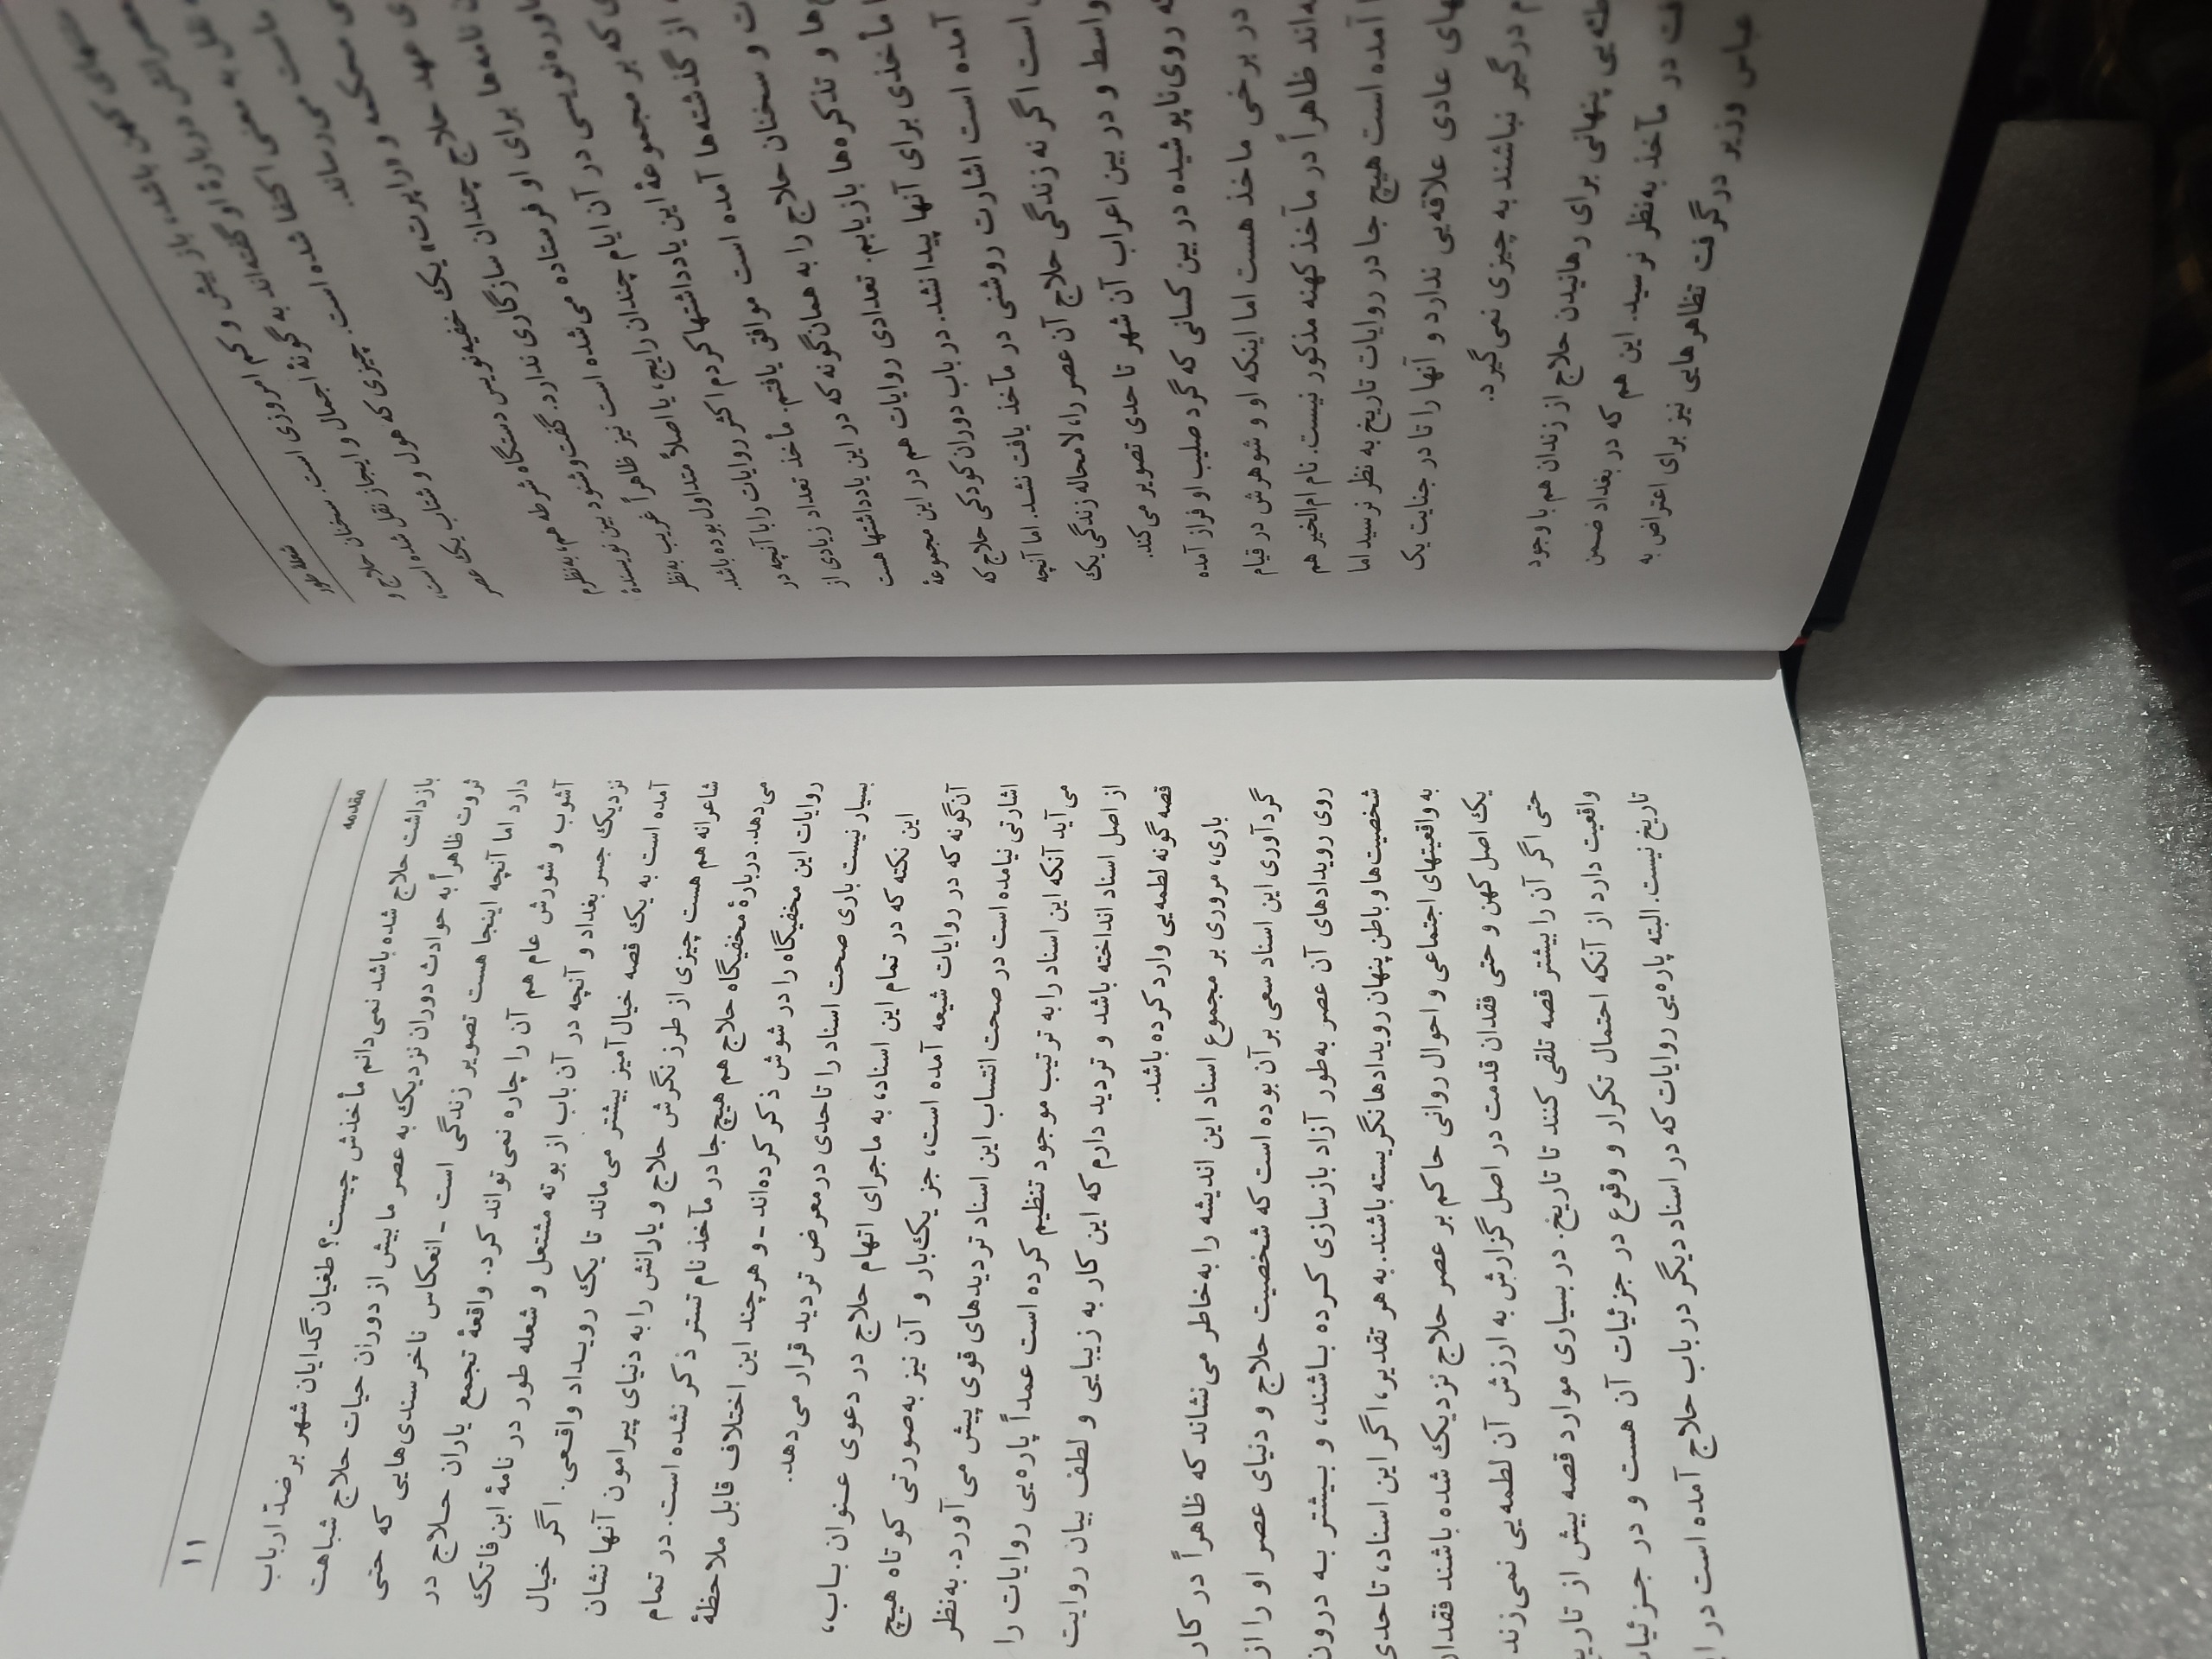 شعلهٔ طور
کهن باشد، باز بیش و کم امروزی است. سخنان حلاج و
دربارهٔ او گفته‌اند به گونهٔ اجمال و ایجاز نقل شده است،
نقل به معنی اکتفا شده است. چیزی که هول و شتاب یک عصر
می‌رساند.
عهد حلاج چندان سازگاری ندارد. گفت و شنود بین نویسندهٔ
و «راپرت» یک خفیه‌نویس دستگاه شرطه هم، به‌نظرم
نامه‌ها برای او فرستاده می‌شده است نیز ظاهراً غریب به‌نظر
نویسی در آن ایام چندان رایج، یا اصلاً متداول بوده باشد.
که بر مجموعهٔ این یادداشتها کردم اکثر روایات را با آنچه در
از گذشته‌ها آمده است موافق یافتم. مأخذ تعداد زیادی از
و سخنان حلاج را به همان‌گونه که در این یادداشتها هست
و تذکره‌ها بازیابم. تعدادی روایات هم در این مجموعهٔ
مأخذی برای آنها پیدا نشد. در باب دوران کودکی حلاج که
آمده است اشارت روشنی در مآخذ یافت نشد. اما آنچه
است اگر نه زندگی حلاج آن عصر را، لامحاله زندگی یک
واسط و در بین اعراب آن شهر تا حدی تصویر می‌کند.
روی ناپوشیده در بین کسانی که گرد صلیب او فراز آمده
در برخی ماخذ هست اما اینکه او و شوهرش در قیام
ظاهراً در مآخذ کهنه مذکور نیست. نام ام‌الخیر هم
آمده است هیچ جا در روایات تاریخ به نظر نرسید اما
عادی علاقه‌یی ندارد و آنها را تا در جنایت یک
درگیر نباشند به چیزی نمی‌گیرد.
پنهانی برای رهانیدن حلاج از زندان هم با وجود
در مآخذ به‌نظر نرسید. این هم که در بغداد ضمن
عباس وزیر درگرفت تظاهرهایی نیز برای اعتراض به
مقدمه
۱۱
بازداشت حلاج شده باشد نمی‌دانم مأخذش چیست؟ طغیان گدایان شهر بر ضدّ ارباب
ثروت ظاهراً به حوادث دوران نزدیک به عصر ما بیش از دوران حیات حلاج شباهت
دارد اما آنچه اینجا هست تصویر زندگی است ـ انعکاس ناخرسندی‌هایی که حتی
آشوب و شورش عام هم آن را چاره نمی‌تواند کرد. واقعهٔ تجمع یاران حلاج در
نزدیک جسر بغداد و آنچه در آن باب از بوته مشتعل و شعله طور در نامهٔ ابن فاتک
آمده است به یک قصه خیال‌آمیز بیشتر می‌ماند تا یک رویداد واقعی. اگر خیال
شاعرانه هم هست چیزی از طرز نگرش حلاج و یارانش را به دنیای پیرامون آنها نشان
می‌دهد. دربارهٔ مخفیگاه حلاج هم هیچ‌جا در مآخذ نام تستر ذکر نشده است. در تمام
روایات این مخفیگاه را در شوش ذکر کرده‌اند ـ و هرچند این اختلاف قابل ملاحظهٔ
بسیار نیست باری صحت اسناد را تا حدی در معرض تردید قرار می‌دهد.
این نکته که در تمام این اسناد، به ماجرای اتهام حلاج در دعوی عنوان بـاب،
آن‌گونه که در روایات شیعه آمده است، جز یک‌بار و آن نیز به‌صورتی کوتاه هیچ
اشارتی نیامده است در صحت انتساب این اسناد تردیدهای قوی پیش می‌آورد. به‌نظر
می‌آید آنکه این اسناد را به ترتیب موجود تنظیم کرده است عمداً پاره‌یی روایات را
از اصل اسناد انداخته باشد و تردید دارم که این کار به زیبایی و لطف بیان روایت
قصه گونه لطمه‌یی وارد کرده باشد.
باری، مروری بر مجموع اسناد این اندیشه را به‌خاطر می‌نشاند که ظاهراً در کار
گردآوری این اسناد سعی بر آن بوده است که شخصیت حلاج و دنیای عصر او را از
روی رویدادهای آن عصر به‌طور آزاد بازسازی کرده باشند، و بیشتر به درون
شخصیت‌ها و باطن پنهان رویدادها نگریسته باشند. به هر تقدیر، اگر این اسناد، تا حدی
به واقعیتهای اجتماعی و احوال روانی حاکم بر عصر حلاج نزدیک شده باشند فقدان
یک اصل کهن و حتی فقدان قدمت در اصل گزارش به ارزش آن لطمه‌یی نمی‌زند
حتی اگر آن را بیشتر قصه تلقی کنند تا تاریخ. در بسیاری موارد قصه بیش از
واقعیت دارد از آنکه احتمال تکرار و وقوع در جزئیات آن هست و در
تاریخ نیست. البته پاره‌یی روایات که در اسناد دیگر در باب حلاج آمده است در